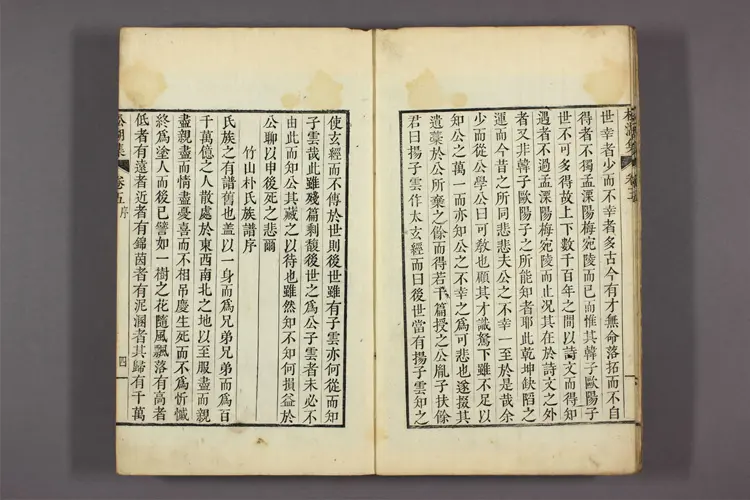 世幸者少而不幸者多古今有才無命落拓而不自
得者不獨孟溧陽梅宛陵而已而惟其韓子歐陽子
世不可多得故上下數千百年之間以詩文而得知
遇者不過孟溧陽梅宛陵而止况其在於詩文之外
者又非韓子歐陽子之所能知者耶此乾坤缺陷之
運而今昔之所同悲悲夫公之不幸一至於是哉余
少而從公學公曰可敎也顧其才識駑下雖不足以
知公之萬一而亦知公之不幸之爲可悲也遂掇其
遺藁於公所棄之餘而得若干篇授之公胤子扶餘
君曰揚子雲作太玄經而曰後世當有揚子雲知之
使玄經而不傳於世則後世雖有子雲亦何從而知
子雲哉此雖殘篇剩馥後世之爲公子雲者未必不
由此而知公其藏之以待也雖然知不知何損益於
公聊以申後死之悲爾
竹山朴氏族譜序
氏族之有譜舊也盖以一身而爲兄弟兄弟而爲百
千萬億之人散處於東西南北之地以至服盡而親
盡親盡而情盡憂喜而不相弔慶生死而不爲忻慽
終爲塗人而後已譬如一樹之花隨風飄落有高者
低者有遠者近者有錦茵者有泥溷者其歸有千萬
湖集 卷五 序 四